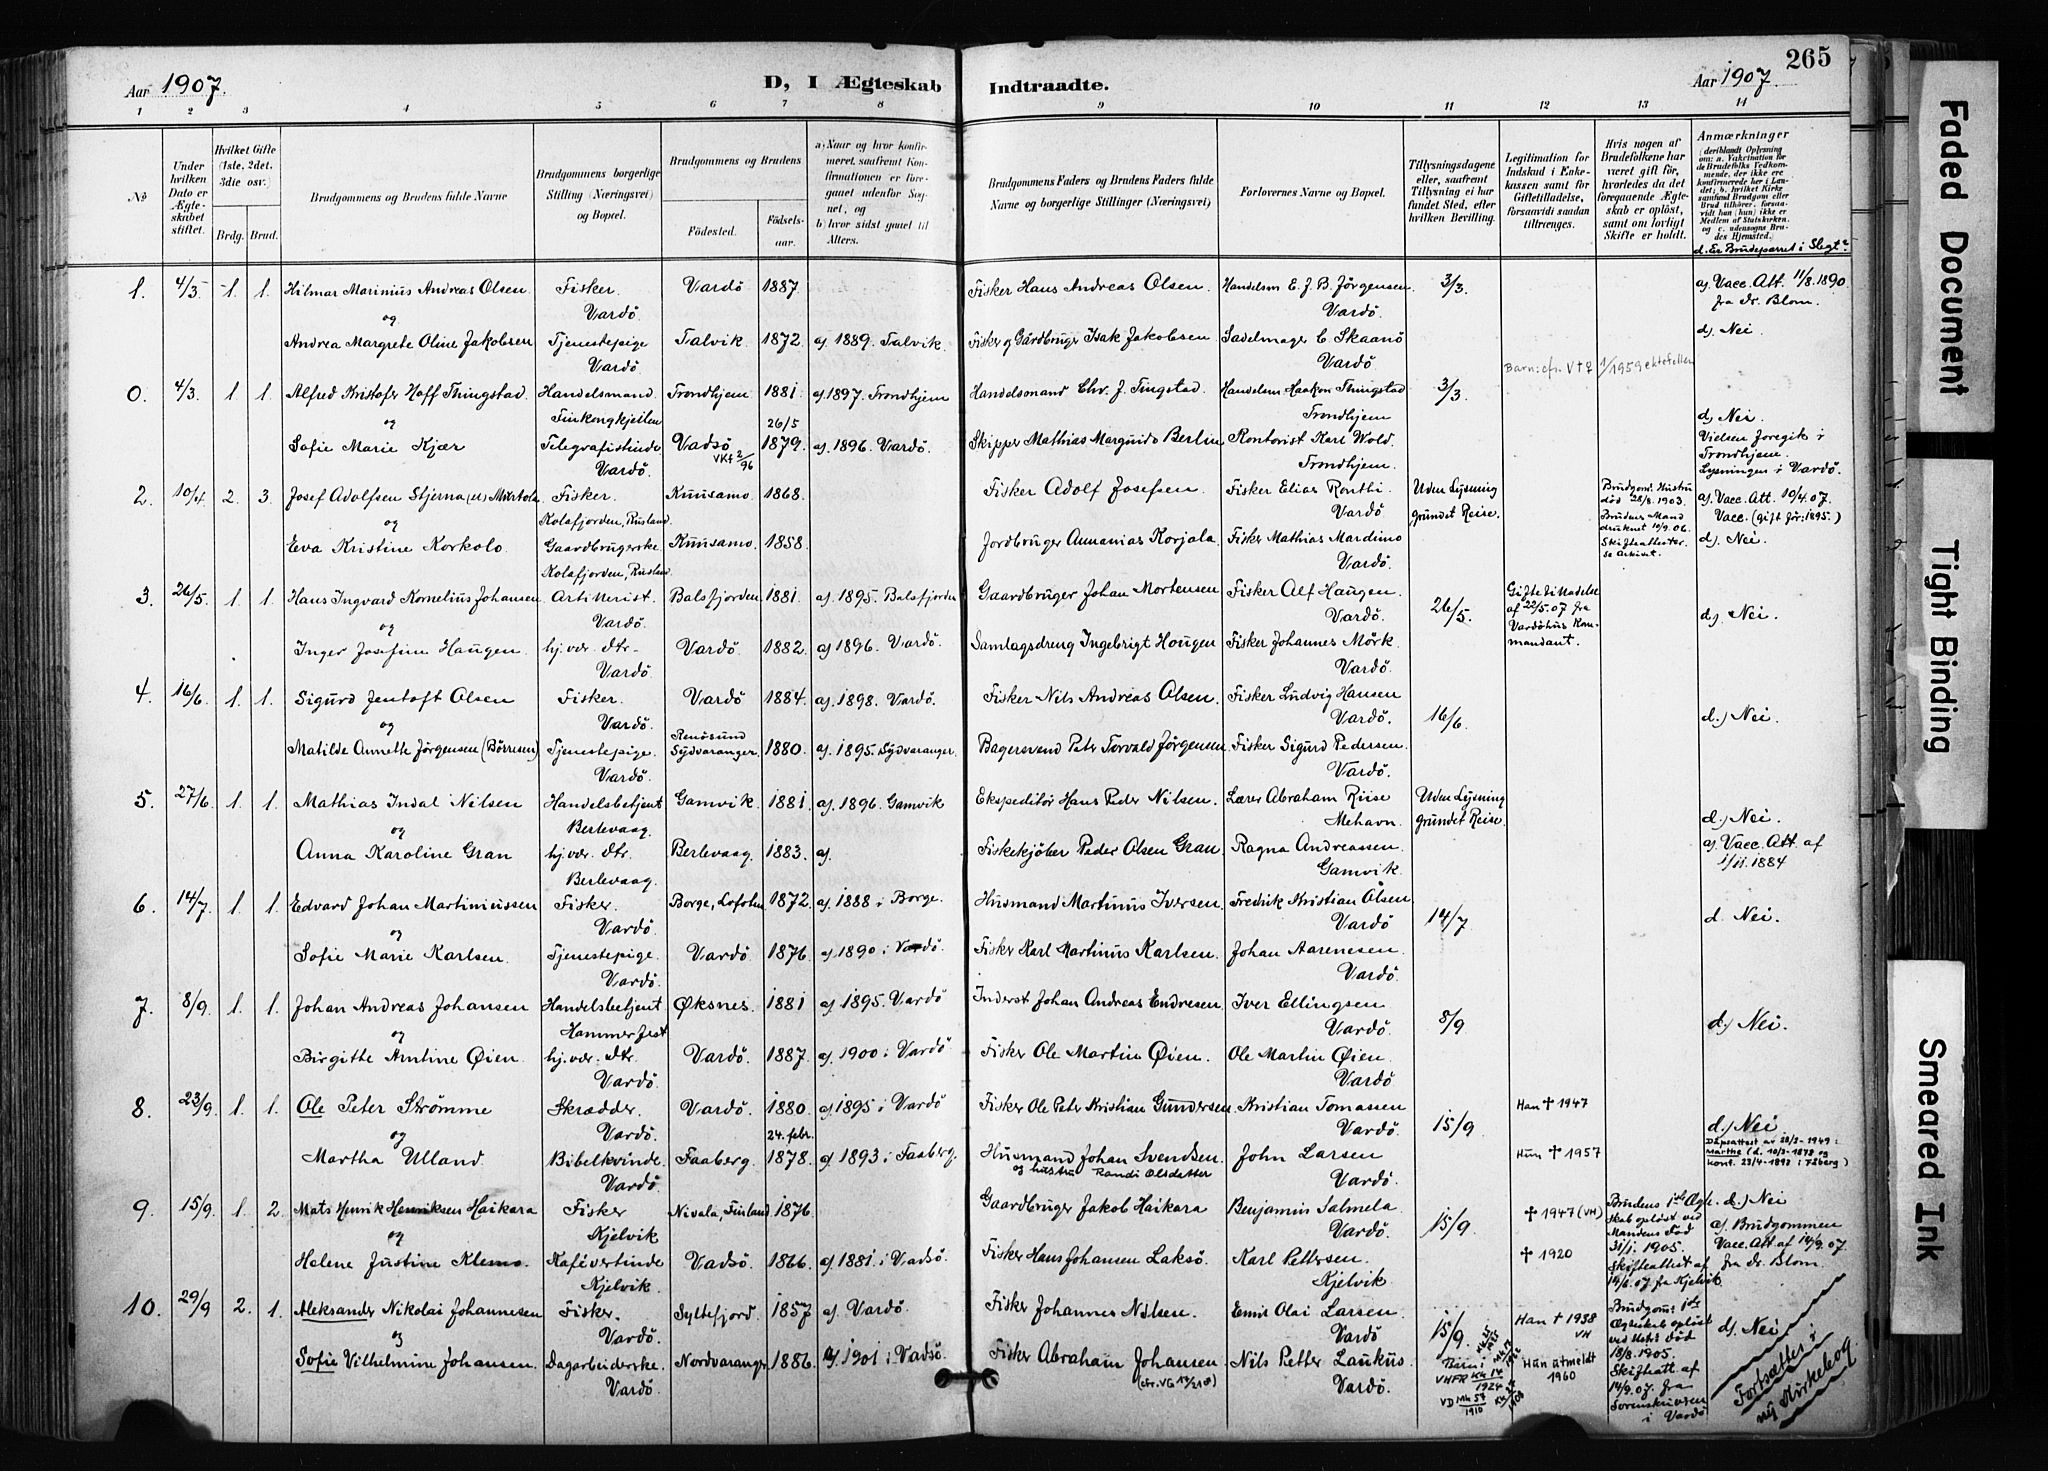 265
Aar 1907.
D, I Ægteskab Indtraadte.
Aar 1907.
1 2 3 4 5 6 7 8 9 10 11 12 13 14
No
Under hvilken Dato er Ægteskabet stiftet.
Hvilket Gifte (1ste, 2det, 3die osv.)
Brdg. Brud.
Brudgommens og Brudens fulde Navne
Brudgommens borgerlige Stilling (Næringsvei) og Bopæl.
Brudgommens og Brudens
Fødested.
Fødselsaar.
a) Naar og hvor konfirmeret, saafremt Konfirmationen er foregaaet udenfor Sognet, og
b) hvor sidst gaaet til Alters.
Brudgommens Faders og Brudens Faders fulde Navne og borgerlige Stillinger (Næringsvei)
Forlovernes Navne og Bopæl.
Tillysningsdagene eller, saafremt Tillysning ei har fundet Sted, efter hvilken Bevilling.
Legitimation for Indskud i Enkekassen samt for Giftetilladelse, forsaavidt saadan tiltrænges.
Hvis nogen af Brudefolkene har været gift før, hvorledes da det foregaaende Ægteskab er opløst, samt om lovligt Skifte er holdt.
Anmærkninger
(deriblandt Oplysning om: a. Vakcination for de Brudefolks Vedkommende, der ikke ere konfirmerede her i Landet; b. hvilket Kirkesamfund Brudgom eller Brud tilhører, forsaavidt han (hun) ikke er Medlem af Statskirken, og c. udensogns Brudes Hjemsted.)
d. Er Brudeparret i Slegt?
1. 4/3 1. 1. Hilmar Marinius Andreas Olsen Fisker. Vardö 1887. Fisker Hans Andreas Olsen. Handelsm E. J. B. Jörgensen 3/3. a). Vacc. Att. 11/8. 1890
og Vardö. Vardö. fra dr. Blom.
Andrea Margrete Oline Jakobsen Tjenestepige Talvik. 1872. a). 1889. Talvik. Fisker og Gårdbruger Isak Jakobsen Sadelmager C Skaanö d). Nei.
Vardö. Vardö
Barn: cfr. V+Z 1/1959 ektefeller
0. 4/3. 1 1. Alfred Kristofer Hoff Thingstad. Handelsmand. Trondhjem 1881. a). 1897. Trondhjem Handelsmand Chr. J. Tingstad. Handelsm Haakon Thingstad 3/3.
og Finkongkjeilen 26/5 Trondhjem d). Nei.
Sofie Marie Kjær Telegrafistinde Vadsö 1879. a). 1896. Vardö. Skipper Mathias Margido Berlin Kontorist Karl Wold. Vielsen foregik i
Vardö. VKf 2/96 Trondhjem. Trondhjem.
Lysningen i Vardö.
2. 10/4. 2. 3. Josef Adolfsen Stjerna Fisker. Kuusamo. 1868. Fisker Adolf Josefsen. Fisker Elias Ronthi Uden Lysning Brudgom: Hustru a). Vacc. Att. 10/4. 07.
og Kolafjorden, Rusland Vardö. grundet Reise. död 28/8. 1903. Vacc. (gift för: 1895.)
Brudens Mand druknet 10/9. 06.
Eva Kristine Korkolo. Gaardbrugerske. Kuusamo. 1858. Jordbruger Annanias Korjala. Fisker Mathias Mardimo Skifteattester. se Arkivet. d). Nei.
Kolafjorden, Rusland. Vardö.
3. 26/5. 1. 1. Hans Ingvard Kornelius Johansen. Artillerist. Balsfjorden. 1881. a). 1895. Balsfjorden Gaardbruger Johan Mortensen Fisker Alf Haugen. 26/5. Giftetilladelse
og Vardö. Vardö. af 22/5. 07 fra d). Nei.
Inger Josefine Haugen. hj. vær. dtr. Vardö. 1882. a) 1896. Vardö. Samlagsdreng Ingebrigt Hougen Fisker Johannes Mörk. Vardöhus Kommandant.
Vardö. Vardö.
4. 16/6. 1. 1. Sigurd Jentoft Olsen Fisker. Vardö 1884. a). 1898. Vardö. Fisker Nils Andreas Olsen. Fisker Ludvig Hansen 16/6.
og Vardö. Renösund Vardö. d.) Nei.
Matilde Annette Jörgensen (Börresen) Tjenestepige. Sydvaranger. 1880. a). 1895. Sydvaranger. Bagersvend Peter Torvald Jörgensen. Fisker Sigurd Pedersen.
Vardö. Vardö.
5. 27/6. 1. 1. Mathias Indal Nilsen Handelsbetjent Gamvik. 1881. a). 1896. Gamvik Ekspeditör Hans Peder Nilsen. Lærer Abraham Riise Uden Lysning
og Berlevaag. Mehavn. grundet Reise. d.) Nei.
Anna Karoline Gran hj. vær. dtr. Berlevaag. 1883. a). Fiskekjöber Peder Olsen Gran Ragna Andreassen a). Vacc. Att. af
Berlevaag. Gamvik. 1/11. 1884
6. 14/7. 1. 1. Edvard Johan Martiniussen Fisker. Borge, Lofoten. 1872. a). 1888 i Borge. Husmand Martinus Iversen. Fredrik Kristian Olsen 14/7 d. Nei.
og Vardö. Vardö
Sofie Marie Karlsen. Tjenestepige. Vardö. 1876. a) 1890 i Vardö. Fisker Karl Martinus Karlsen. Johan Aarenesen
Vardö. Vardö.
7. 8/9. 1. 1. Johan Andreas Johansen Handelsbetjent Øksnes. 1881 a) 1895. Vardö Inderst Johan Andreas Endresen Iver Ellingsen 8/9. d.) Nei.
og Hammerfest Vardö.
Birgithe Antine Øien. hj. vær. dtr. Vardö. 1887. a) 1900 i Vardö Fisker Ole Martin Øien. Ole Martin Øien.
Vardö. Vardö
8. 23/9. 1. 1. Ole Peter Strömme Skrædder. Vardö. 1880. a) 1895 i Vardö Fisker Ole Peter Kristian Gundersen. Kristian Tomassen 15/9 Han ✝ 1947
og Vardö. 24. febr. Vardö. d.) Nei
Martha Ulland. Bibelkvinde. Faaberg. 1878. a) 1893 i Faaberg. Husmand Johan Svendsen. John Larsen Hun ✝ 1957 Dåpsattest av 28/3-1949:
Vardö. og hustru Randi Olsdatter Vardö. Marthe (d. 10/3-1878 og
konf. 23/4-1893 i Fåberg)
9. 15/9. 1. 2. Mats Henrik Henriksen Haikara Fisker Nivala, Finland. 1876. Gaardbruger Jakob Haikara Benjamin Salmela 15/9. ✝ 1947 (VH) Brudens 1ste Ægteskab oplöst ved d.) Nei
og Kjelvik Vardö. Mandens Död a). Brudgommen
Helene Justine Klemo. Kaféværtinde Vadsö. 1866. a) 1881. i Vadsö. Fisker Hans Johansen Laksö. Karl Pettersen. ✝ 1920 31/1. 1905. Vacc. Att. af 14/9. 07.
Kjelvik. Kjelvik Skifteattest af 14/8. 07. fra Kjelvik fra dr. Blom.
10. 29/9 2. 1. Aleksander Nikolai Johannesen Fisker. Syltefjord. 1857 a). Vardö. Fisker Johannes Nilsen. Emil Olai Larsen 15/9. Han ✝ 1938 Brudgom: 1ste
og Vardö. Vardö VH Ægteskab oplöst d). Nei
Sofie Vilhelmine Johansen. Dagarbeiderske. Nordvaranger 1886. a). 1901 i Vadsö. Fisker Abraham Johansen Nils Petter Laukus. Barn: Hun utmeldt 1960 ved Hstr. död 18/8. 1905.
Vardö. (cfr. VG 14/21 a) Vardö. VHFR Kk 14/1924 Skifteatt. af 14/9. 07. fra
VD Mk 54/1910 Sorenskriveren i Vardö
Fortsættes i
ny Kirkebog.
Faded Document
Tight Binding
Smeared Ink